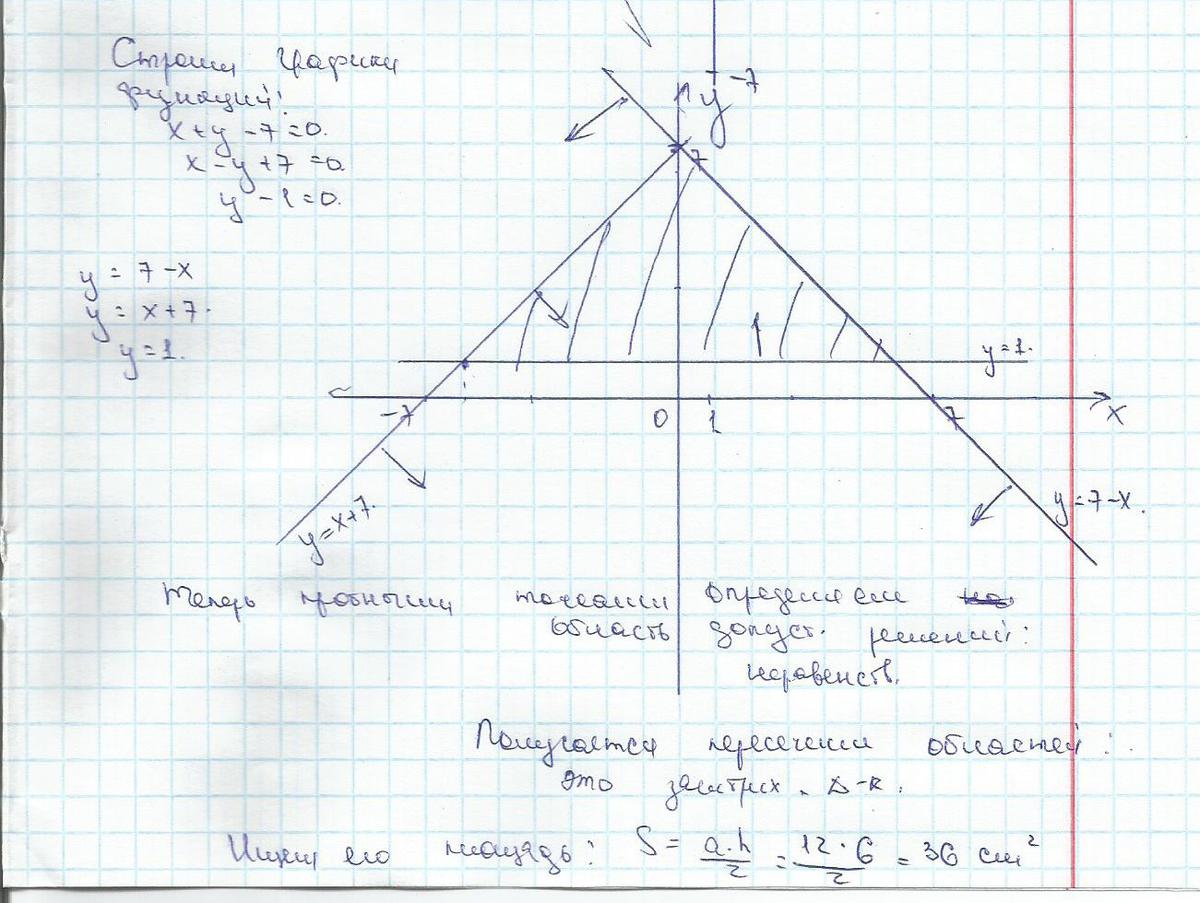 Строим графики
функций:
x+y-7=0.
x-y+7=0.
y-1=0.
y = 7-x
y = x+7.
y=1.
-7
y
7
y=1.
-7
0
1
7
x
y=x+7.
y=7-x.
Теперь пробными точками определяем
область допуст. решений:
неравенств.
Получается пересечении областей:
это заштрих. Δ-к.
Ищем его площадь: S = a·h/2 = 12·6/2 = 36 см²